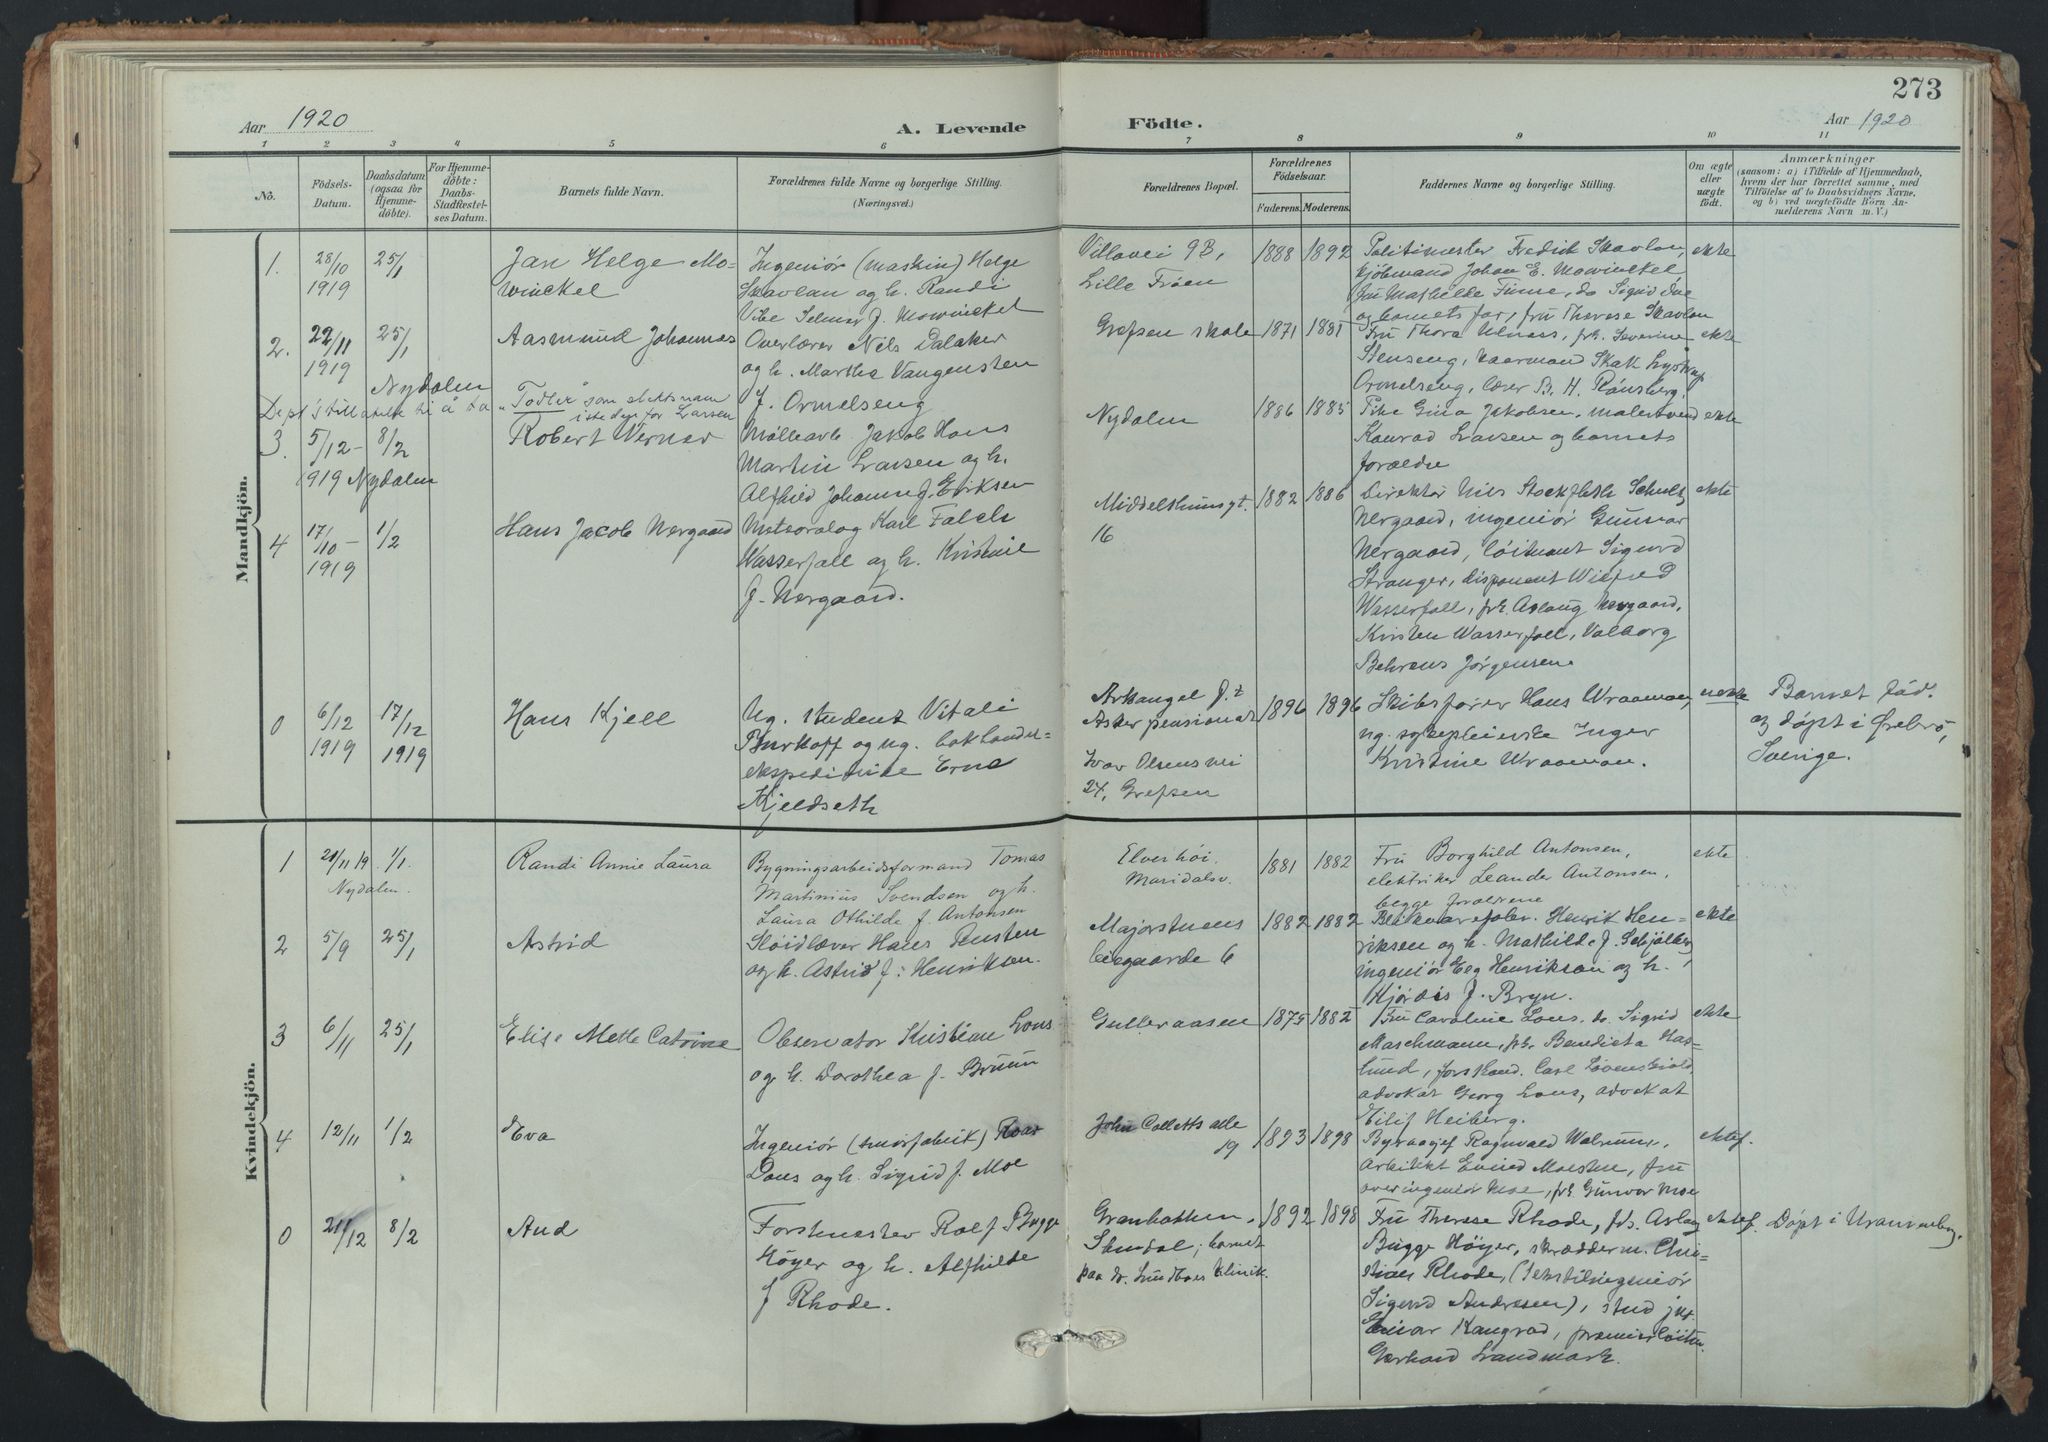 273
Aar 1920
A. Levende
Födte.
Aar 1920
1 2 3 4 5 6 7 8 9 10 11
Nô.
Födsels-
Datum.
Daabsdatum
(ogsaa for
Hjemme-
döbte).
For Hjemme-
döbte:
Daabs-
Stadfæstel-
ses Datum.
Barnets fulde Navn.
Forældrenes fulde Navne og borgerlige Stilling.
(Næringsvei.)
Forældrenes Bopæl.
Forældrenes
Födselsaar.
Faderens. Moderens.
Faddernes Navne og borgerlige Stilling.
Om ægte
eller
uægte
födt.
Anmærkninger
(saasom: a) i Tilfælde af Hjemmedaab,
hvem der har forrettet samme, med
Tilföielse af to Daabsvidners Navne.
og b) ved uægtefödte Börn An-
melderens Navn m. V.)
Mandkjön.
1.
28/10
1919
25/1
Jan Helge Mo-
winckel
Ingeniør (maskin) Helge
Skavlan og h. Randi
Vibe Selmer f. Mowinckel
Villavei 9B,
Lille Frøen
1888
1892
Politimester Fredrik Skavlan,
kjøbmand Johan E. Mowinckel
fru Mathilde Finne, do Sigrid Due
og barnets far, fru Therese Skavlan
ekte
2.
22/11
1919
25/1
Nydalen
Aasmund Johannes
Overlærer Nils Dalaker
og h. Martha Vangensten
f. Ormelseng
Grefsen skole
1871
1881
Fru Thora Ulnæss, frk. Severine
Stenseng, kaarmand Skak Lystrup
Ormelseng, lærer B. H. Rønsberg.
ekte
Dept's tillatelse til å ta
"Todler" som slektsnam
istedenfor Larsen
3.
5/12-
1919
8/2
Nydalen
Robert Verner
Møllearb. Jakob Hans
Martin Larsen og h.
Alfhild Johanne f. Eriksen
Nydalen
1886
1885
Pike Gina Jakobsen, malersvend
Konrad Larsen og barnets
forældre
ekte
4
17/10-
1919
1/2
Hans Jacob Nergaard
Meteorolog Karl Falch
Wasserfall og h. Kristine
f. Nergaard.
Middelthunsgt.
16
1882
1886
Direktør Nils Stockfleth Schultz
Nergaard, ingeniør Gunnar
Nergaard, løitnant Sigurd
Stranger, disponent Wilfred
Wasserfall, frk. Aslaug Nergaard,
Kirsten Wasserfall, Valborg
Behrens Jørgensen
ekte
0
6/12
1919
17/12
1919
Hans Kjell
Ug. student Vitali
Burkoff og ug. bokhander-
ekspeditrice Erna
Kjeldseth
Arkangel f. t
Asker pensionat
Ivar Olsens vei
24, Grefsen
1896
1896
Skibsfører Hans Wraaman,
ug. sykepleierske Inger
Kristine Wraaman.
uekte
Barnet fød.
og døpt i Ørebro,
Sverige.
Kvindekjön.
1
21/11 19.
1/1.
Nydalen.
Randi Annie Laura
Bygningsarbeidsformand Tomas
Martinius Svendsen og h.
Laura Othilde f. Antonsen
Elverhøi.
Maridalsv.
1881
1882
Fru Borghild Antonsen,
elektriker Leander Antonsen,
begge forældrene
ekte
2
5/9
25/1
Astrid
Sløidlærer Hans Rusten
og h. Astrid f. Henriksen.
Majorstuens
leiegaarde 6
1882
1882
Blikvarefabr. Henrik Hen-
riksen og h. Mathilde f. Schjølberg,
ingeniør Eeg Henriksen og h.
Hjørdis f. Bryn.
ekte
3
6/11
25/1
Elise Mette Catrine
Observator Kristian Lous
og h. Dorothea f. Bruun
Gulleraasen
1875
1882
Fru Caroline Lous, do. Sigrid
Maschmann, frk. Benedicta Has-
lund, forstkand. Carl Løvenskiold,
advokat Georg Lous, advokat
Eilif Heiberg.
ekte
4
12/11
1/2
Eva
Ingeniør (smørfabrik) Roar
Dons og h. Sigrid f. Moe
John Colletts alle
19
1893
1898
Byraasjef Ragnvald Walnum,
arkitekt Eivind Moestue, fru
overingeniør Moe, frk Gunvor Moe
ektef.
0
21/12
8/2
Aud
Forstmester Rolf Bugge
Høyer og h. Alfhilde
f Rhode.
Granbakken,
Slemdal; barnet
paa dr. Lundhs klinik.
1892
1898
Fru Therese Rhode, frk. Aslaug
Bugge Høyer, skræddderm. Chri-
stian Rhode, (tekstilingeniør
Sigurd Andresen), stud jur
Einar Haugrød, premierløitn.
Gerhard Landmark.
ektef.
Døpt i Uranienborg.